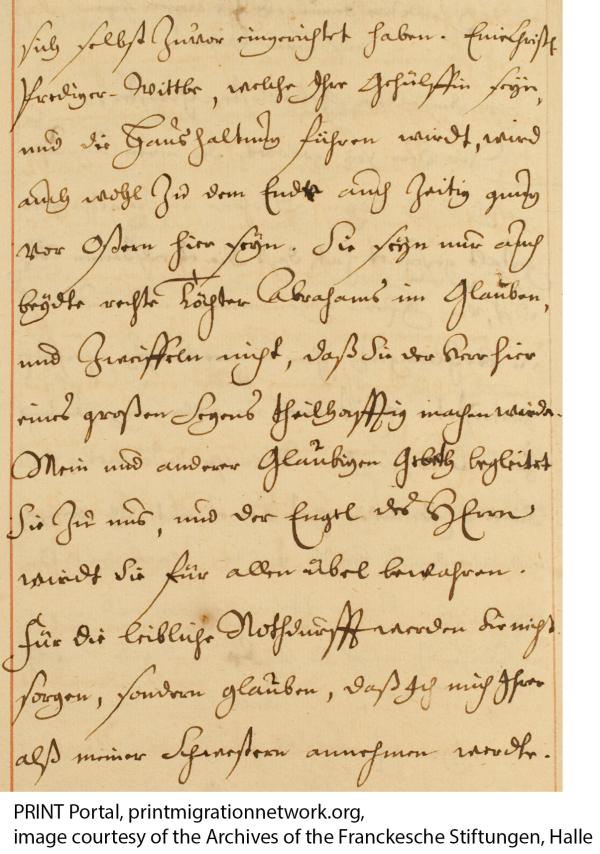 sich selbst Zuvor eingerichtet haben. Eine Christl.
Prediger-Wittbe, welche Ihre Gehülffin seyn,
und die Haushaltung führen wirdt, wird
auch wohl Zu dem Ende auch Zeitig gnug
vor Ostern hier seyn. Sie seyn nur auch
beydte rechte Töchter Abrahams im Glauben,
und Zweiffeln nicht, daß Sie der Herr hier
eines großen Segens theilhafftig machen werde.
Mein und anderer Gläubigen Gebeth begleitet
Sie Zu uns, und der Engel des HErrn
wirdt Sie für allen übel bewahren.
Für die leibliche Nothdurfft werden Sie nicht
sorgen, sondern glauben, daß Ich mich Ihrer
alß meiner Schwestern annehmen werdte.
PRINT Portal, printmigrationnetwork.org,
image courtesy of the Archives of the Franckesche Stiftungen, Halle